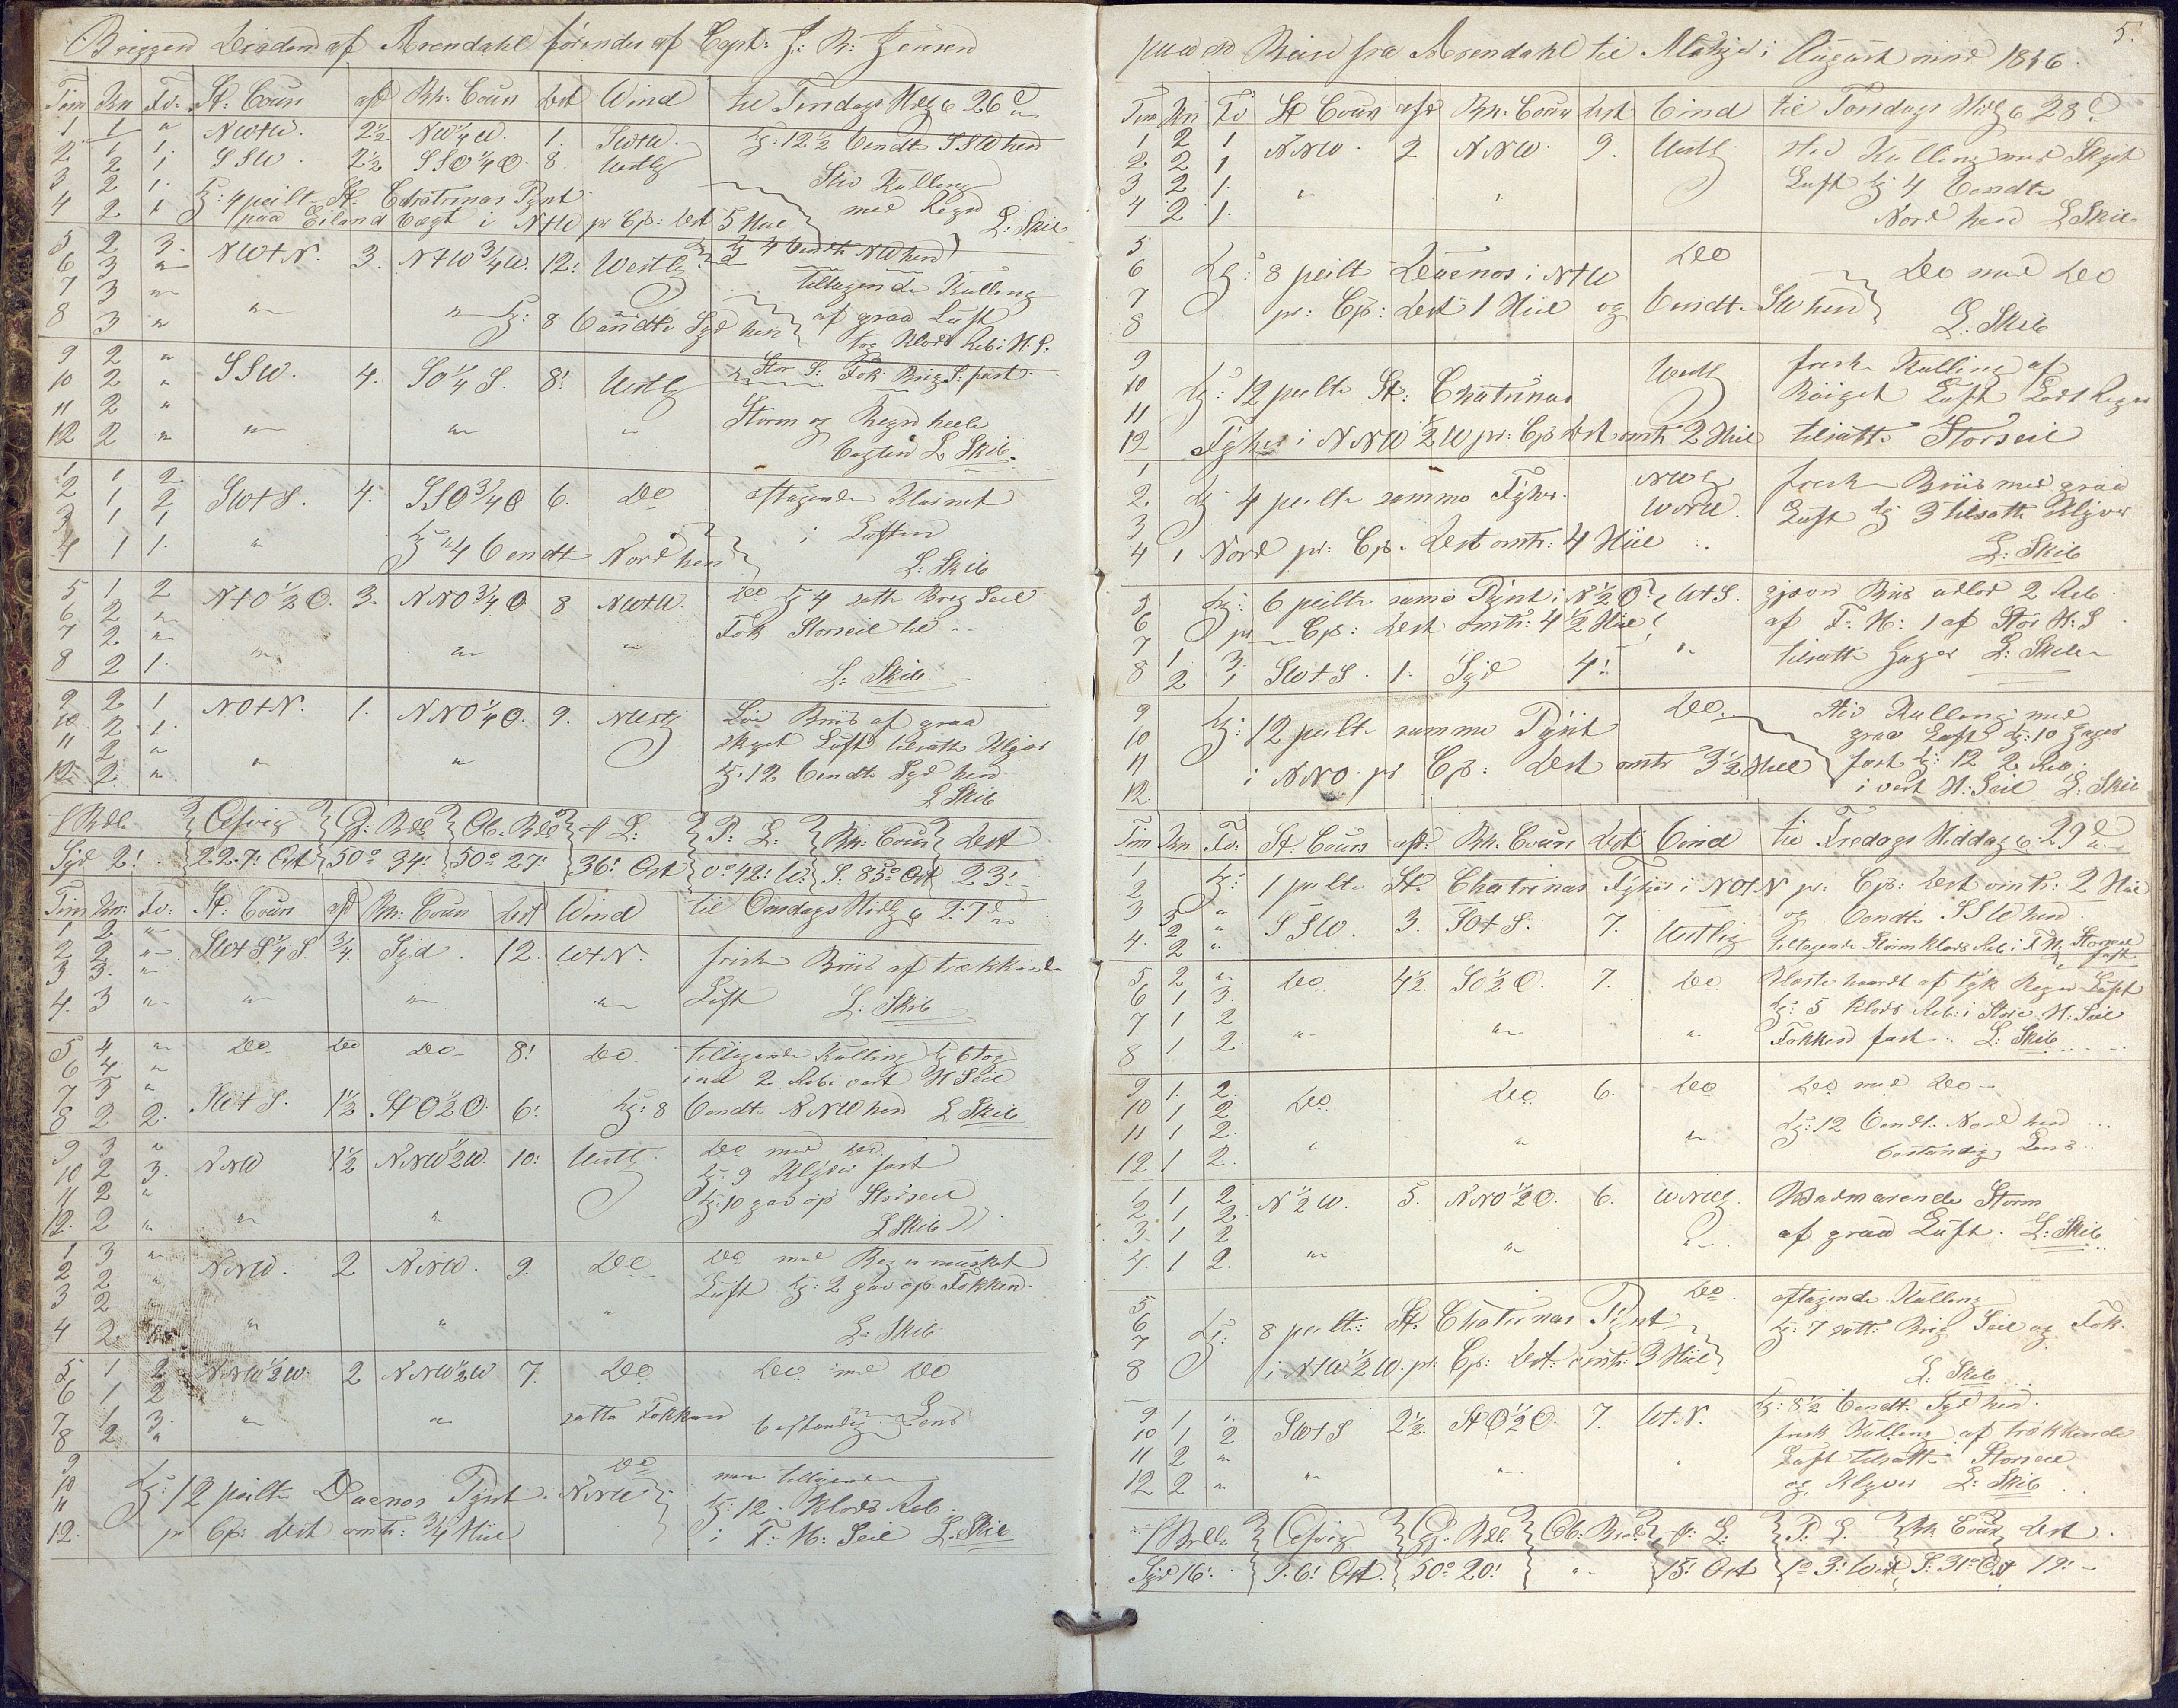 Briggen Diadem af Arendahl förendes af Capt: J: R: Jensen
Tim Kn Fv: St: Cours afd Bh: Cours Dist Wind til Tirsdags Midg 26 d
1 1 " NWtW. 2½ NW¼W. 1. SWtW. Kl: 12½ Vendt SSW hen
2 1 1. SSW. 2½ SSO¼O. 8. Westlg
3 2 1 Stiv Kulling
3 2 1. Kl: 4 peilt St: Chatrinas Pynt med Regn
4 2 " paa Eiland Wagt i NtW pr Cps: Dist 5 Miil L: Skib
5 2 3. NWtN. 3. NtW¾W. 12: Westlg Kl 4 Vendt NW hen
6 3 " tiltagende Kulling
7 3 " " " Kl: 8 Vendte Syd hen af graa Luft
8 3 " tog Klods Reb i M. S:
9 2 " SSW. 4. SO¼S. 8: Westlg Stor S: Fok Brig S: fast
10 2 "
11 2 " Storm og Regn heele
12 2 " " " " Vagten L Skib
1 1 2
2 1 2 SWtS. 4. SSO¾O 6. Do aftagende Klarnet
3 1 1 i Luften
4 1 1. " Kl 4 Vendt Nord hen L: Skib
5 1 2 NtO½O. 3. NNO¾O 8 NWtW. Do Kl 4 satte Brig Seil
6 2 " Fok Storseil til
7 2 " " " "
8 2 1. L: Skib
9 2 1 NOtN. 1. NNO¼O. 9. NWestg Löi Briis af graa
10 2 1. skyet Luft tilsatte Klyver
11 2 " " " Kl: 12 Vendte Syd hen
12 2. " L Skib
f Brde Afvig Gj: Bde Ob: Bde f L: P: L: Bh: Cours Dist
Syd 2! 22.7: Ost 50° 34: 50° 27: 36! Ost 0° 42: W: S. 85° Ost 23!
Tim Kn: Fv: St: Cours afd Bh: Cours Dist Wind til Onsdags Midg 27 d
1 2 "
2 2 " SWtS¼S. ¾ Syd. 12. WtN. frisk Briis af trækkende
3 3. "
4. 3 " " " " Luft L: Skib
5 4 " Do Do Do 8! Do tiltagende Kulling Kl 6 tog
6 4 " ind 2 Reb i vort M Seil
7 3 "
8 2 2. SWtS. 1½ StO½O. 6: Kl: 8 Vendte NNW hen L Skib
9 3 " Do med Do
10 2 3. NNW 1½ NNW½W. 10: Westlg. Kl: 9 Klyver fast
11 2 " Kl: 10 gav op Storseil
12. 2 " " " L Skib
1 3 " Do med Regn musket
2 2 " NNW. 2 NNW. 9. Do
3 2 " Luft Kl: 2 gav op Fokken
4 2. " " L: Skib
5 1 2 NNW½W. 2 NNW½W 7. Do Do med Do
6 1 2
7 1 3. " " satte Fokken bestandig Lens
8 2 "
9 Do
10 Kl: 12 peilte Duenos Pynt i NNW
11 Kl: 12 Klods Reb
12. pr Cps: Dist omtr: ¾ Miil i F: M: Seil L: Skib
5.
paa en Reise fra Arendahl til i August mnd 1856.
Tim Kn Fv St Cours afd Bh: Cours Dist Vind til Torsdags Midg 28 d
1 2 1 NNW. 2 NNW. 9. Westl stiv Kulling med Skyet
2. 2 1
3 2 1. " " Luft Kl 4 Vendte
4 2 1. Nord hen L Skib
5 Do
6 Kl: 8 peilte Duenos i NtW Do med Do
7 pr: Cps: Dist 1 Miil og Vendte SW hen
8 L: Skib
9 Westl frisk Kulling af
10 Kl: 12 peilte St: Chatrinas Böiget Luft
11
12 Fyher i NNW½W pr: Cps Dist omtr 2 Miil tilsatte Storseil
1 NWlg frisk Briis med graa
2. Kl 4 peilte samme Fyher. WNW. Luft Kl 3 tilsatte Klyver
3
4 1 Nord pr: Cps. Dist omtr: 4 Miil L: Skib
5 Kl: 6 peilte samme Pynt i N½O. WtS. gjævn Briis udlod 2 Reb
6 pr Cps: Dist omtr: 4½ Miil af F: M: 1 af Stor M: S
7 1 3. "
8 2 1 SWtS. 1. Syd 4: tilsatte Jager L: Skib
9 Do stiv Kulling med
10 Kl: 12 peilte samme Pynt graa Luft Kl: 10 Jager
11 fast Kl: 12 2 Reb
12. i NNO. pr Cps: Dist omtr 3½ Miil i vort M: Seil L: Skib
Tim Kn Fv: St: Cours afd: Bh: Cours Dist Vind til Fredags Middag 29 d
1 Kl: 1 peilte St. Chatrinas Fyher i NOtN pr: Cps: Dist omtr: 2 Miil
2 og Vendte SSW hen
3 3 " SSW. 3. SOtS. 7. Westlig
4. 2 " tiltagende Storm Klods Reb i F M, Storseil fast
5 2 " Do 4½. SO½O. 7. Do Blæste haardt af tyk Regn Luft
6 1 3. Kl: 5 Klods Reb i Store M: Seil
7 1 2 " " "
8 1 2 Fokken fast L: Skib
9 1. 2. Do Do 6. Do Do med Do
10 1 2
11 1 2. " " " Kl: 12 Vendte Nord hen
12 1 2. bestandig Lens
1 1 2 N½W. 5. NNO½O. 6. WNWlg. Vedvarende Storm
2 1 2.
3. 1 2 af graa Luft. L: Skib
4. 1 2. " " "
5 Do. aftagende Kulling
6 Kl: 8 peilte: St. Chatrinas Pynt Kl: 7 satte Brig Seil og Fok.
7
8 i NtW½W. pr: Cp: Dist: omtr: 3 Miil L. Skib
9 1 1. Kl: 8½ Vendte Syd hen
10 1 2. SWtS 2½. StO½O. 7. WtN. frisk Kulling af trækkende
11 2 " Luft tilsatte Storseil
12 2 " " " " og Klyver L: Skib
f Brde Afvig Gj. Bde Ob: Brde f: L: P: L: Bh Cours Dist.
Syd 16! 9.6! Ost 50° 20! " 15! Ost 1° 3! West S: 31° Ost 19!